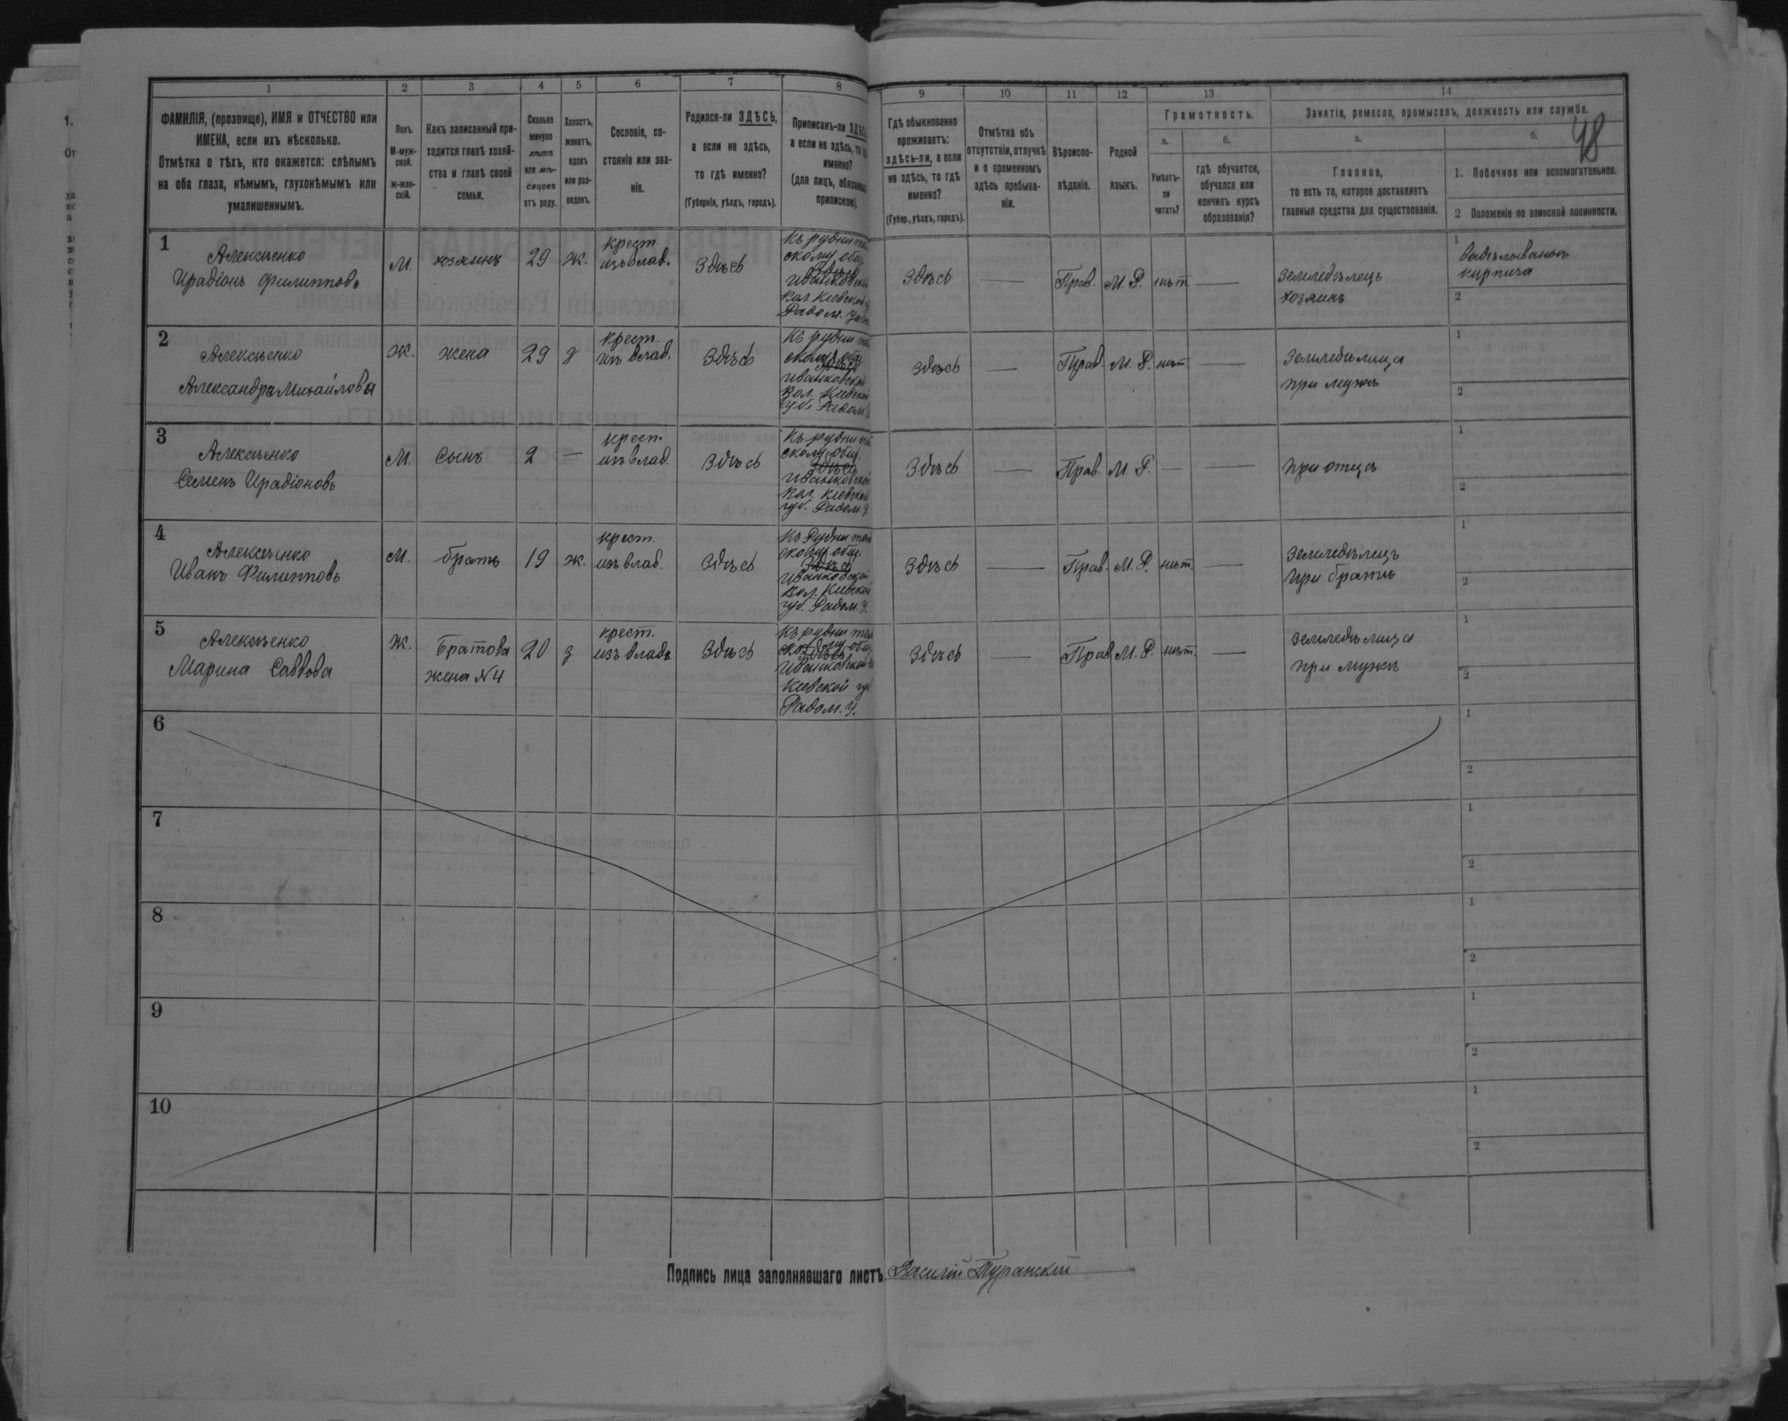 1 2 3 4 5 6 7 8 9 10 11 12 13 14
ФАМИЛІЯ, (прозвище), ИМЯ и ОТЧЕСТВО или
ИМЕНА, если ихъ нѣсколько.
Отмѣтка о тѣхъ, кто окажется: слѣпымъ
на оба глаза, нѣмымъ, глухонѣмымъ или
умалишеннымъ.
Полъ.
М-муж-
ской.
ж-жен-
скій.
Какъ записанный при-
ходится главѣ хозяй-
ства и главѣ своей
семьи.
Сколько
минуло
лѣтъ
или мѣ-
сяцевъ
отъ роду.
Холостъ,
женатъ,
вдовъ
или раз-
веденъ.
Сословіе, со-
стояніе или зва-
ніе.
Родился-ли ЗДѢСЬ,
а если не здѣсь,
то гдѣ именно?
(Губернія, уѣздъ, городъ).
Приписанъ-ли
а если не здѣсь, то
именно?
(для лицъ,
припискою).
Гдѣ обыкновенно
проживаетъ:
здѣсь-ли, а если
не здѣсь, то гдѣ
именно?
(Губер., уѣздъ, городъ).
Отмѣтка объ
отсутствіи, отлучкѣ
и о временномъ
здѣсь пребыва-
ніи.
Вѣроиспо-
вѣданіе.
Родной
языкъ.
Грамотность.
а.
Умѣетъ-
ли
читать?
б.
гдѣ обучается,
обучался или
кончилъ курсъ
образованія?
Занятіе, ремесло, промыселъ, должность или служба.
48
а.
Главное,
то есть то, которое доставляетъ
главныя средства для существованія.
б.
1. Побочное или вспомогательное.
2 Положеніе по воинской повинности.
1
Алексѣенко
Ирадіонъ Филипповъ
М. хозяинъ 29 ж.
крест.
изъ влад.
Здѣсь
Къ рудни
скому общ.
Здѣсь
Иванковской
Вол. Кіевской
Радом.
Здѣсь — Прав. М. Р. нѣт —
Земледѣлецъ
хозяинъ
1
Выдѣлываніе
кирпича
2
2
Алексѣенко
Александра Михайлова
Ж. жена 29 з
крест.
изъ влад.
Здѣсь
Къ рудни
скому общ.
Здѣсь
Иванковской
Вол. Кіевской
губ. Радом.
Здѣсь — Прав. М. Р. нѣт. —
Земледѣлица
при мужѣ
1
2
3
Алексѣенко
Семенъ Ирадіоновъ
М. Сынъ 2 —
крест.
изъ влад.
Здѣсь
Къ рудни
скому общ.
Здѣсь
Иванковской
Вол. Кіевской
губ. Радом. у
Здѣсь — Прав. М. Р. — —
при отцѣ
1
2
4
Алексѣенко
Иванъ Филипповъ
М. братъ 19 ж.
крест.
изъ влад.
Здѣсь
Къ Рудни
скому общ.
Здѣсь
Иванковской
Вол. Кіевской
губ. Радом. у.
Здѣсь — Прав. М. Р. нѣт. —
Земледѣлецъ
при братѣ
1
2
5
Алексѣенко
Марина Саввова
Ж.
Братова
жена №4
20 з
крест.
изъ владѣ
Здѣсь
Къ рудни
скому общ
Здѣсь
Иванковской
Кіевской гу
Радом. у.
Здѣсь — Прав. М. Р. нѣт. —
Земледѣлица
при мужѣ
1
2
6
1
2
7
1
2
8
1
2
9
1
2
10
1
2
Подпись лица заполнявшаго листъ Василій Туранскій